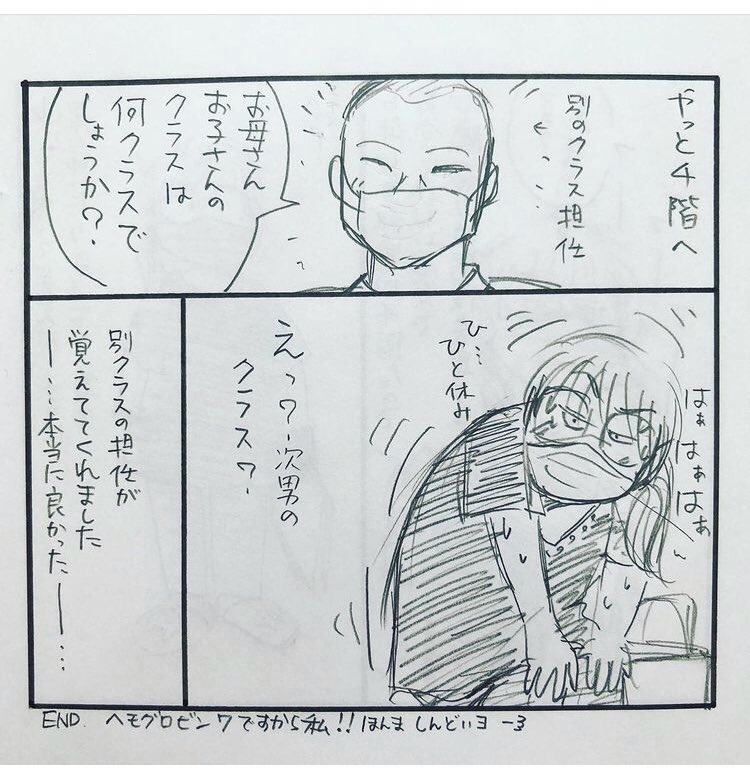 やっと4階へ
別のクラス担任
お母さん
お子さんの
クラスは
何クラスで
しょうか?
はぁ はぁ はぁ
ひ…
ひと休み
えっ?
次男の
クラス?
別クラスの担任が
覚えててくれました
ー…本当に良かったーー…
END. ヘモグロビン7ですから私!!ほんま しんどいヨ -3